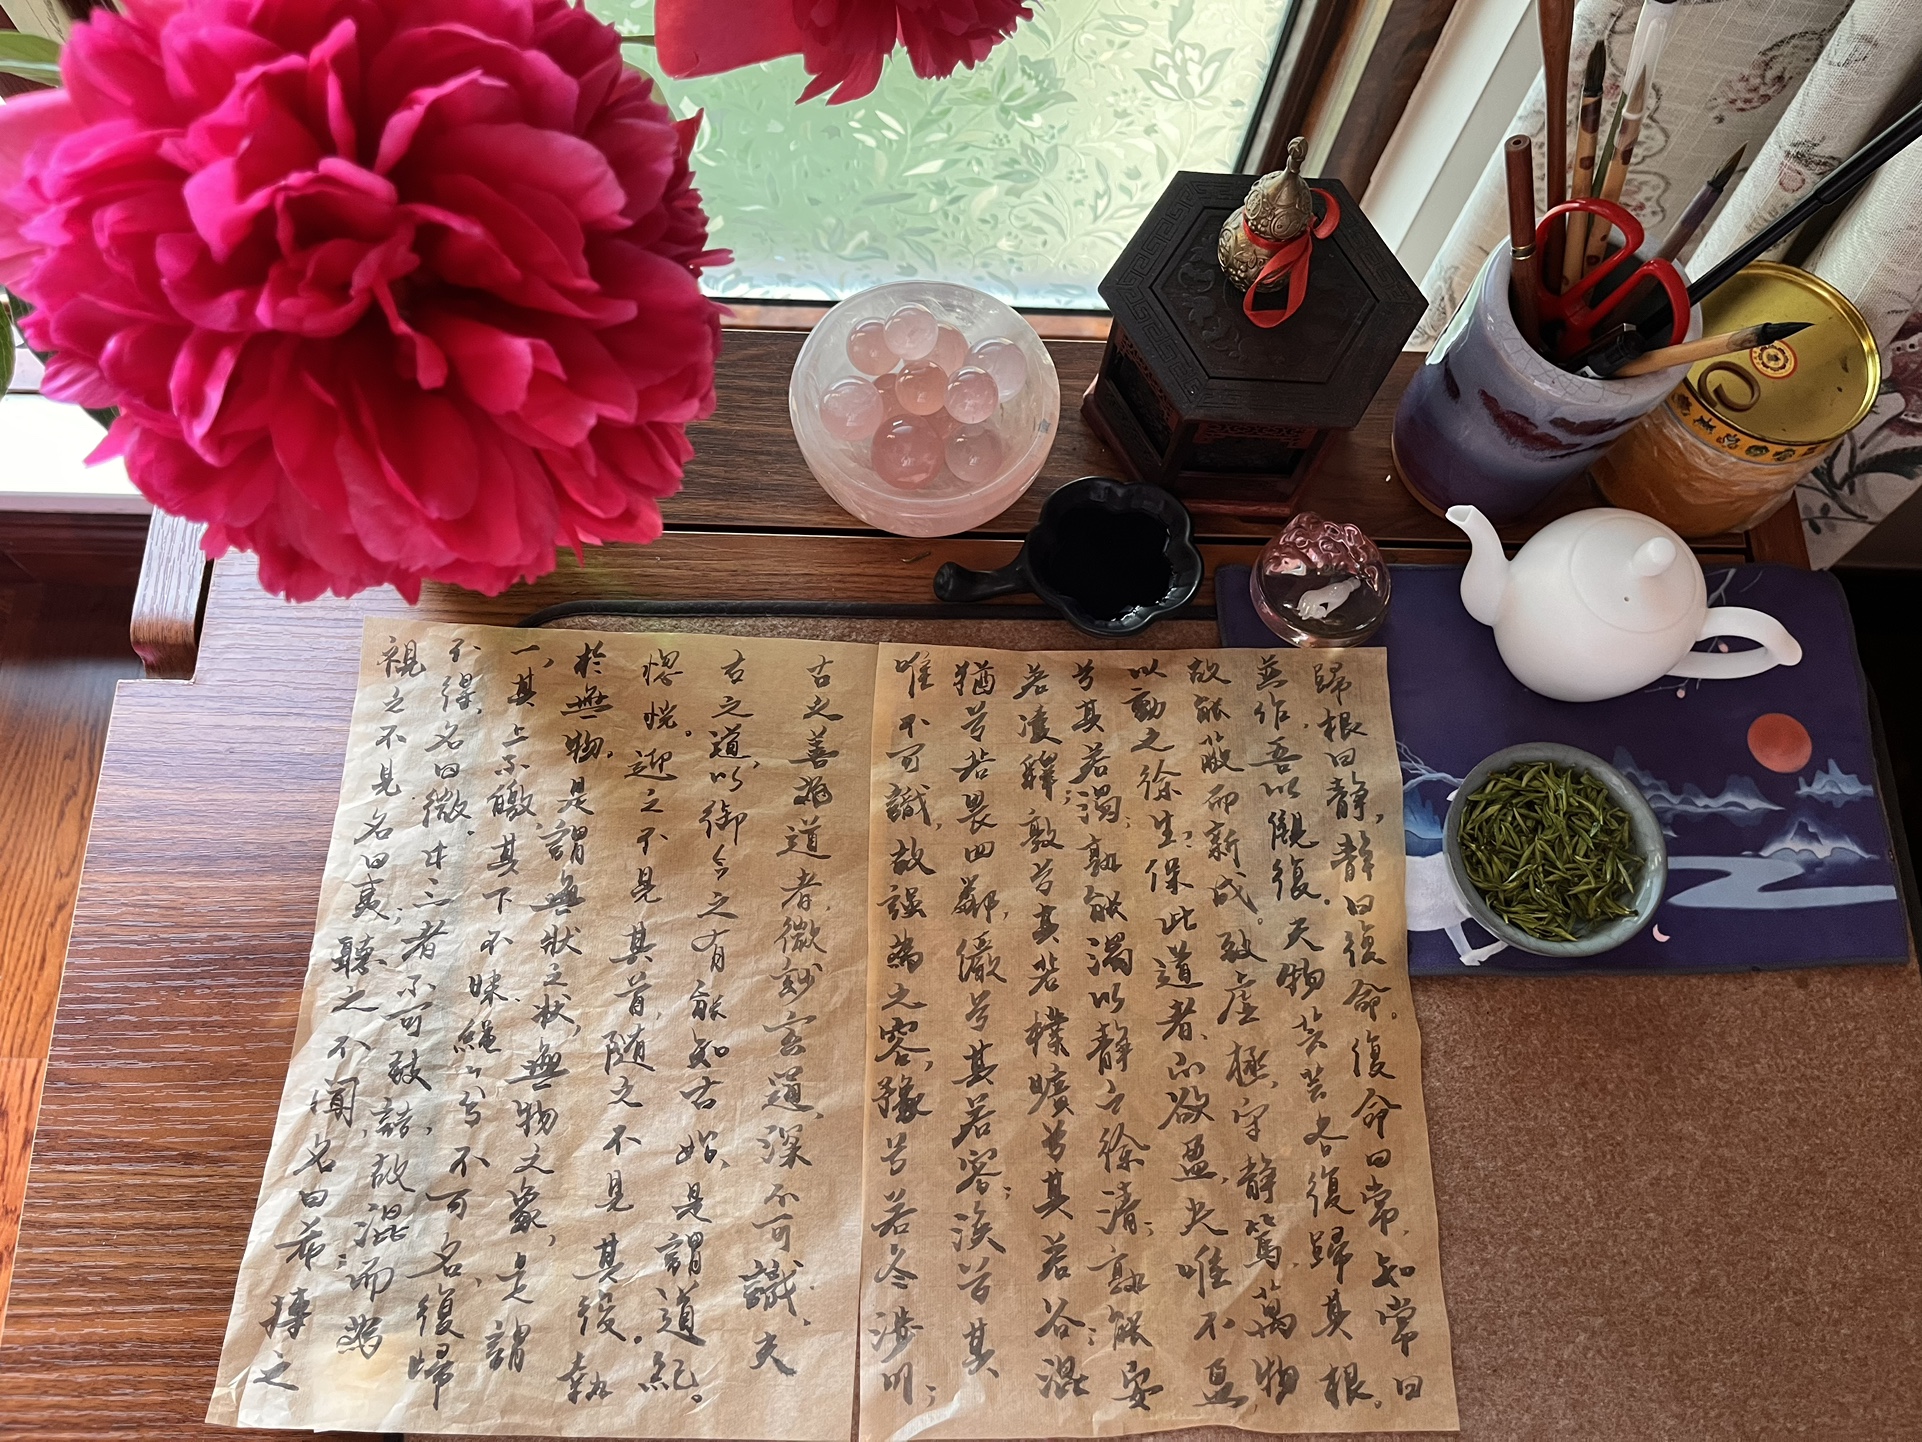 視之不見名曰夷;聽之不聞,名曰希,搏之
不得,名曰微.此三者不可致詰,故混而為
一,其上不皦,其下不昧.繩繩兮不可名,復歸
於無物,是謂無狀之狀,無物之象,是謂
惚恍。迎之不見其首,随之不見其後。執
古之道,以御今之有,能知古始,是謂道紀。
古之善為道者,微妙玄通,深不可識.夫
唯不可識,故强為之容,豫兮若冬涉川;
猶兮若畏四鄰,儼兮其若容;渙兮其
若凌釋;敦兮其若樸曠兮其若谷;混
兮其若濁;孰能濁以静之徐清;孰能安
以動之徐生;保此道者,不欲盈,夫唯不盈,
故能蔽而新成。致虛極,守静篤,萬物
並作,吾以觀復.夫物芸芸各復歸其根。
歸根曰静,静曰復命.復命曰常,知常曰